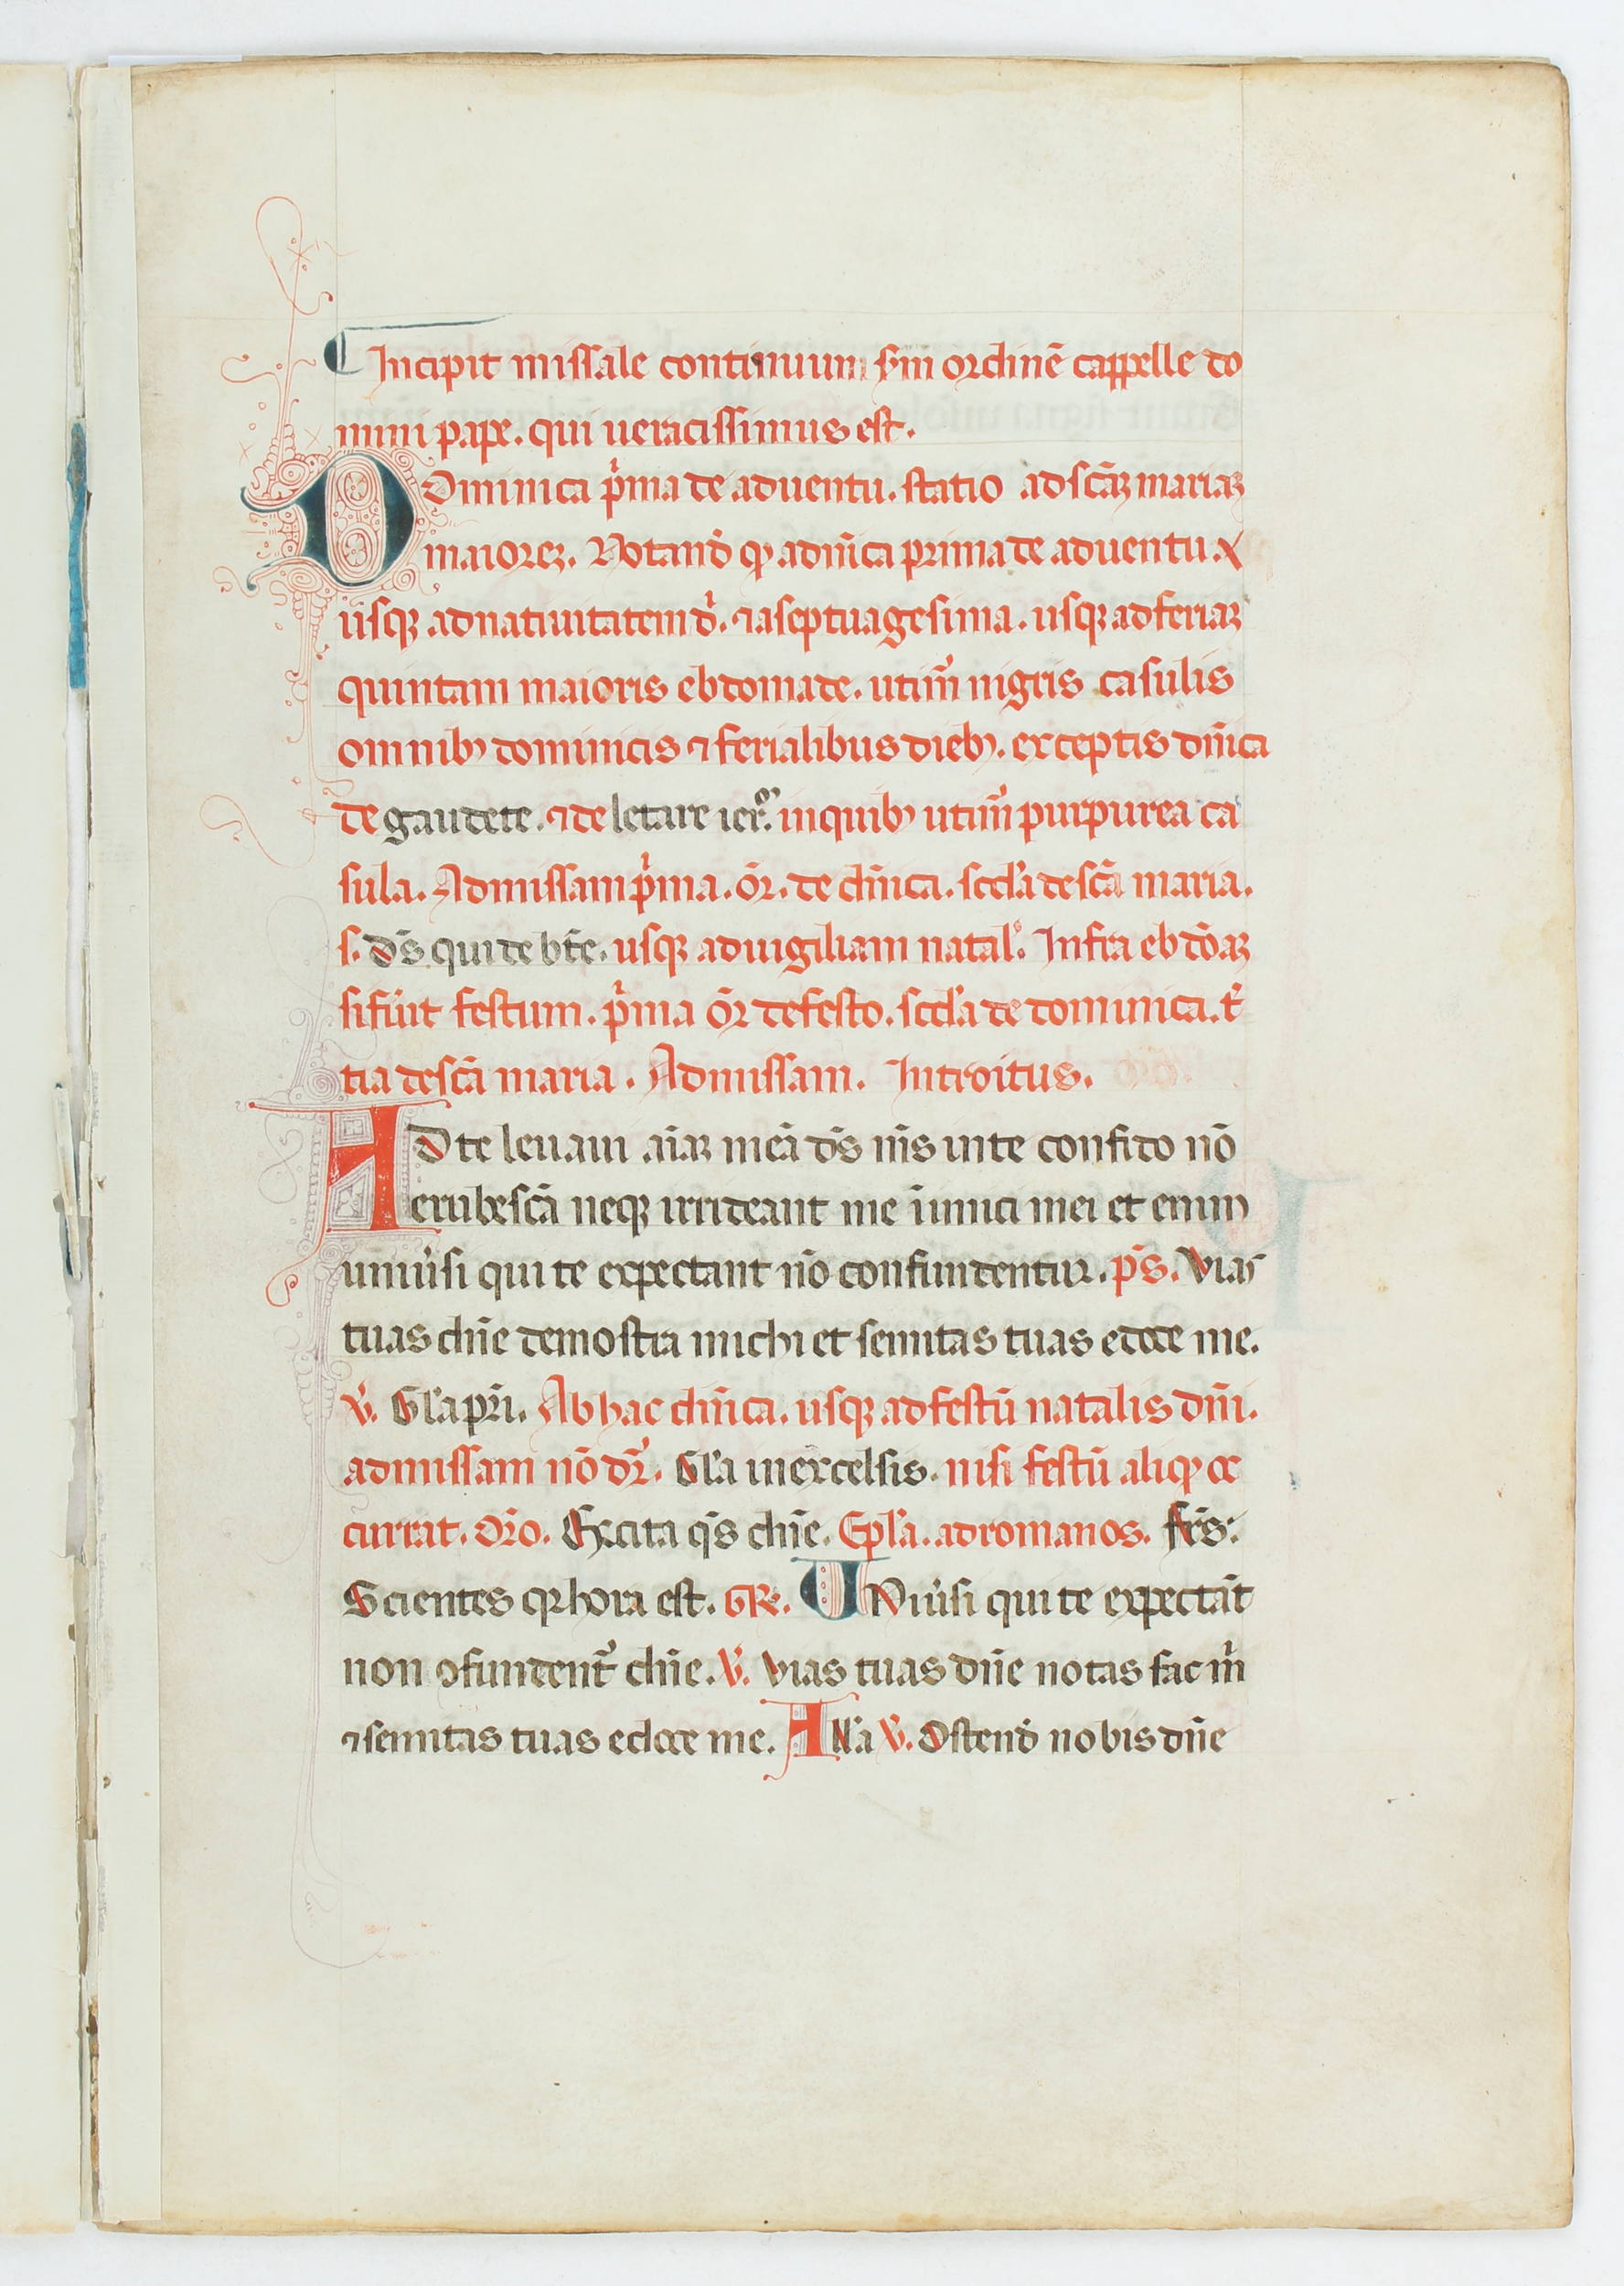 Incipit missale continuum s̄m ordinē cappelle do
mini pape. qui ueracissimus est.
Dominica pͥma de aduentu. statio ad scāꝫ mariaꝫ
maioreꝫ. Notanđ ꝙ adn̄ica prima de aduentu.
usqꝫ ad natiuitatem đ. ⁊ a septuagesima. usqꝫ ad feriaꝫ
quintam maioris ebdomade. utim̄ nigris casulis
omnibꝰ dominicis ⁊ ferialibus diebꝰ. exceptis dn̄ica
de gaudete. ⁊ de letare ier. in quibꝰ utim̄ purpurea ca
sula. Ad missam pͥma. ōr. de dn̄ica. scďa de scā maria.
s. ds̄ qui de btē. usqꝫ ad uigiliam natał. Infra ebdōaꝫ
si fūit festum. pͥma ōr de festo. scďa de dominica. t̉
tia de scā maria. Ad missam. Introitus.
AD te leuaui aīaꝫ meā ds̄ ms̄ in te confido nō
erubescā neqꝫ irrideant me īimici mei et enim
uniūsi qui te expectant nō confundentur. ps̄. Vias
tuas dn̄e demostra michi et semitas tuas edoce me.
℣. Gła pr̄i. Ab hac dn̄ica. usqꝫ ad festū natalis dn̄i.
ad missam nō dr̄. Gła in excelsis. nisi festū aliqꝙ oc
currat. Or̄o. Excita qs̄ dn̄e. Epła. ad romanos. frs̄:
Scientes qꝛ hora est. GR. UNiūsi qui te expectāt
non ꝯfundent̄ dn̄e. ℣. Vias tuas dn̄e notas fac m̄
⁊ semitas tuas edoce me. Alła ℣. Ostenđ nobis dn̄e